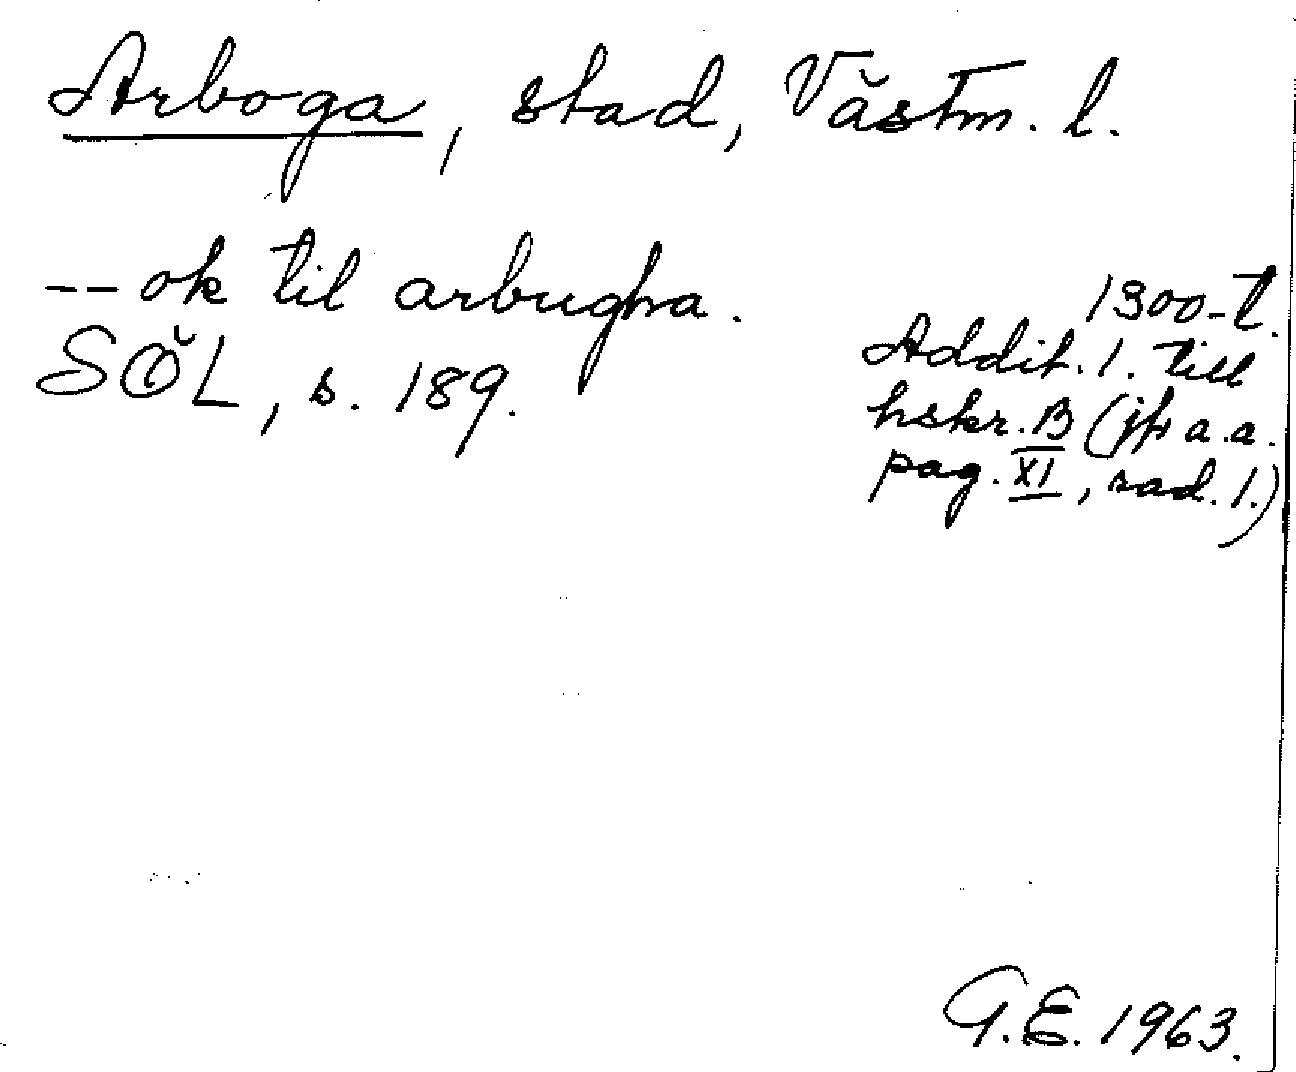 Arboga, stad, Västm. l.
-- ok til arbugha.
SÖL, s. 189.
1300-t.
Addit. 1. till
hskr. B (jfr a.a.
pag. XI, rad. 1.)
G.E. 1963.